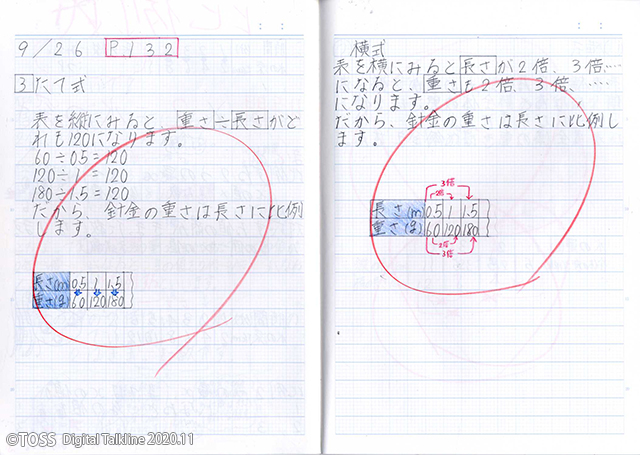 9/26 P.132
3 たて式
表を縦にみると 重さ÷長さがど
れも120になります。
60÷0.5=120
120÷1=120
180÷1.5=120
だから、針金の重さは長さに比例
します。
長さ(m) 0.5 1 1.5
重さ(g) 60 120 180
横式
表を横にみると長さが2倍、3倍、…
になると、重さも2倍、3倍、……
になります。
だから、針金の重さは長さに比例し
ます。
3倍
2倍
長さ(m) 0.5 1 1.5
重さ(g) 60 120 180
2倍
3倍
©TOSS Digital Talkline 2020.11